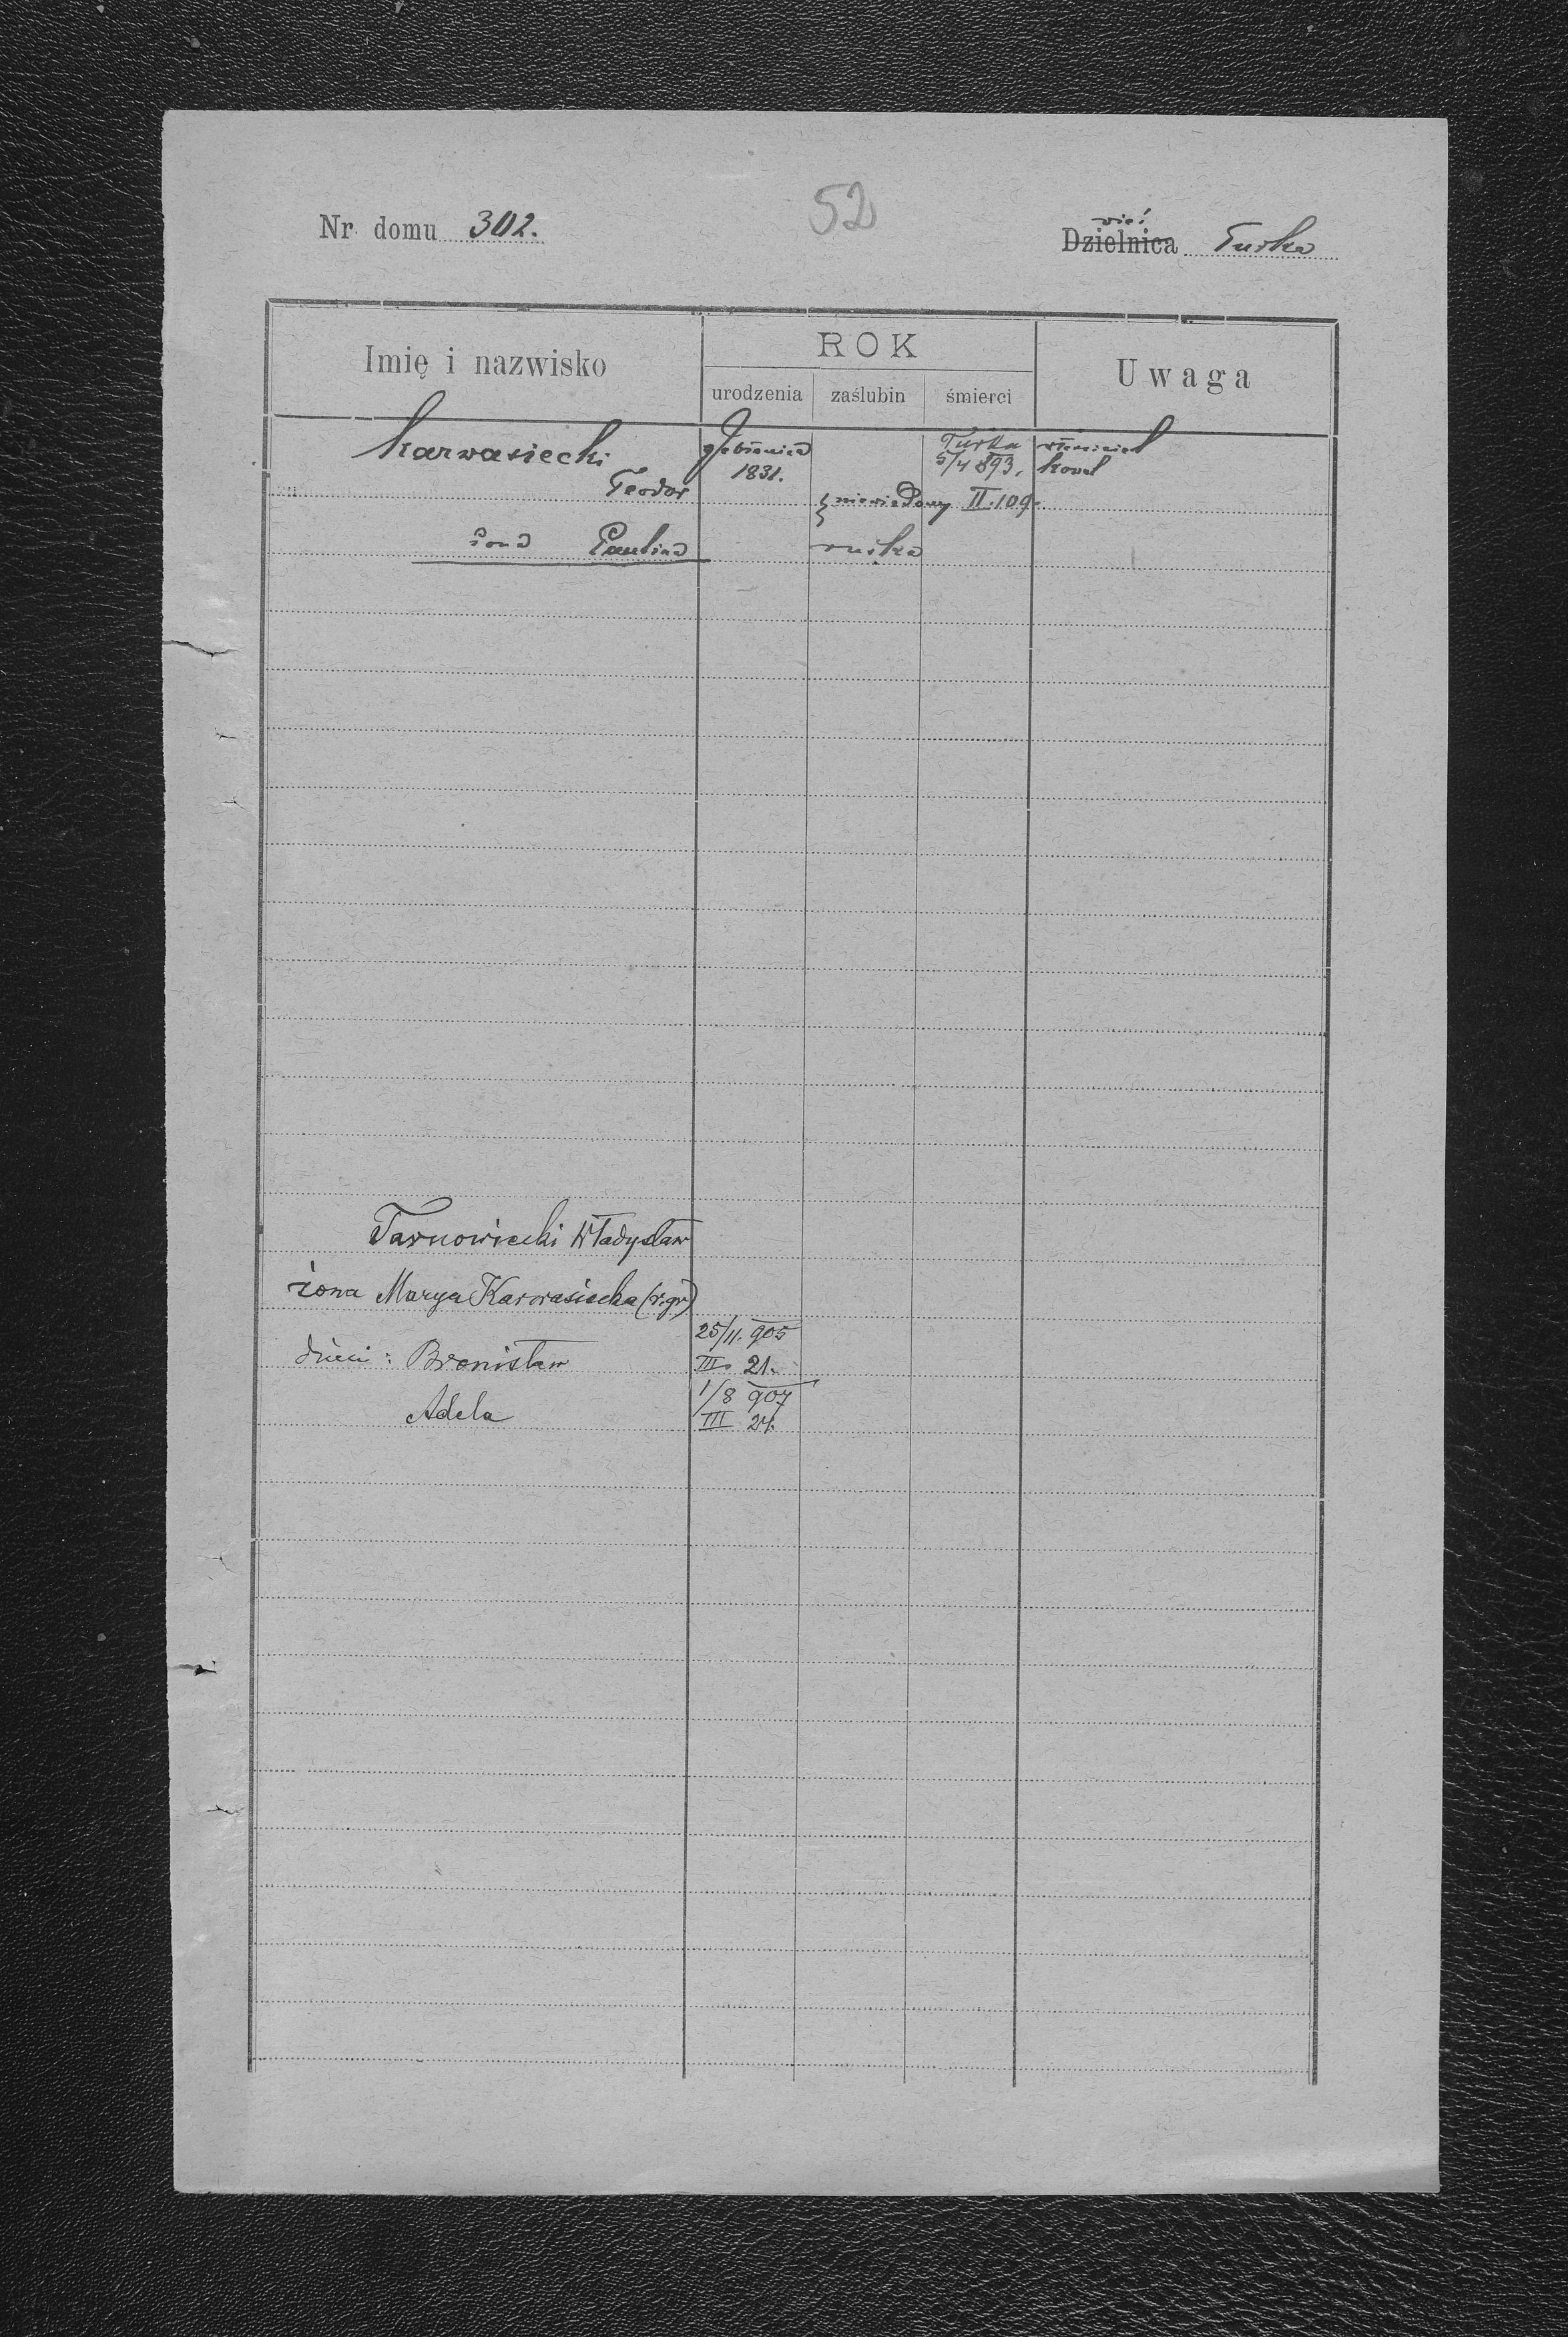 52
Nr. domu 302.
wieś
Dzielnica Turka
Imię i nazwisko
ROK
urodzenia zaślubin śmierci
Uwaga
Karwasiecki Jabłonica Turka
1831. 5/4 893. kowal
Teodor
niewiadomy II. 109.
żona Paulina ruska
Tarnowiecki Władysław
żona Marya Karwasiecka (r. gr)
25/11. 905
dzieci: Bronisław III. 21.
1/8 907
Adela III 24.